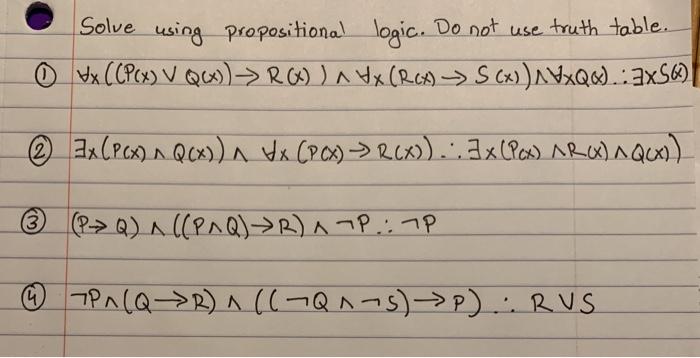 Solve using propositional logic. Do not use truth table.
① ∀x((P(x) ∨ Q(x)) → R(x)) ∧ ∀x(R(x) → S(x)) ∧ ∀xQ(x) ∴ ∃xS(x)
② ∃x(P(x) ∧ Q(x)) ∧ ∀x(P(x) → R(x)) ∴ ∃x(P(x) ∧ R(x) ∧ Q(x))
③ (P → Q) ∧ ((P ∧ Q) → R) ∧ ¬P ∴ ¬P
④ ¬P ∧ (Q → R) ∧ ((¬Q ∧ ¬S) → P) ∴ R ∨ S